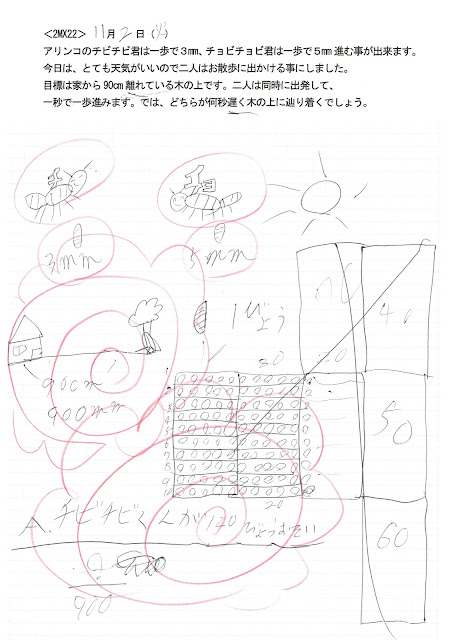 <2MX22> 11月2日 (
アリンコのチビチビ君は一歩で3㎜、チョビチョビ君は一歩で5㎜進む事が出来ます。
今日は、とても天気がいいので二人はお散歩に出かける事にしました。
目標は家から90㎝離れている木の上です。二人は同時に出発して、
一秒で一歩進みます。では、どちらが何秒遅く木の上に辿り着くでしょう。
チ チョ
3mm 5mm
1びょう
40
20 20
90cm
900mm
50
20
A. チビチビくんが120びょうおそい
60
900